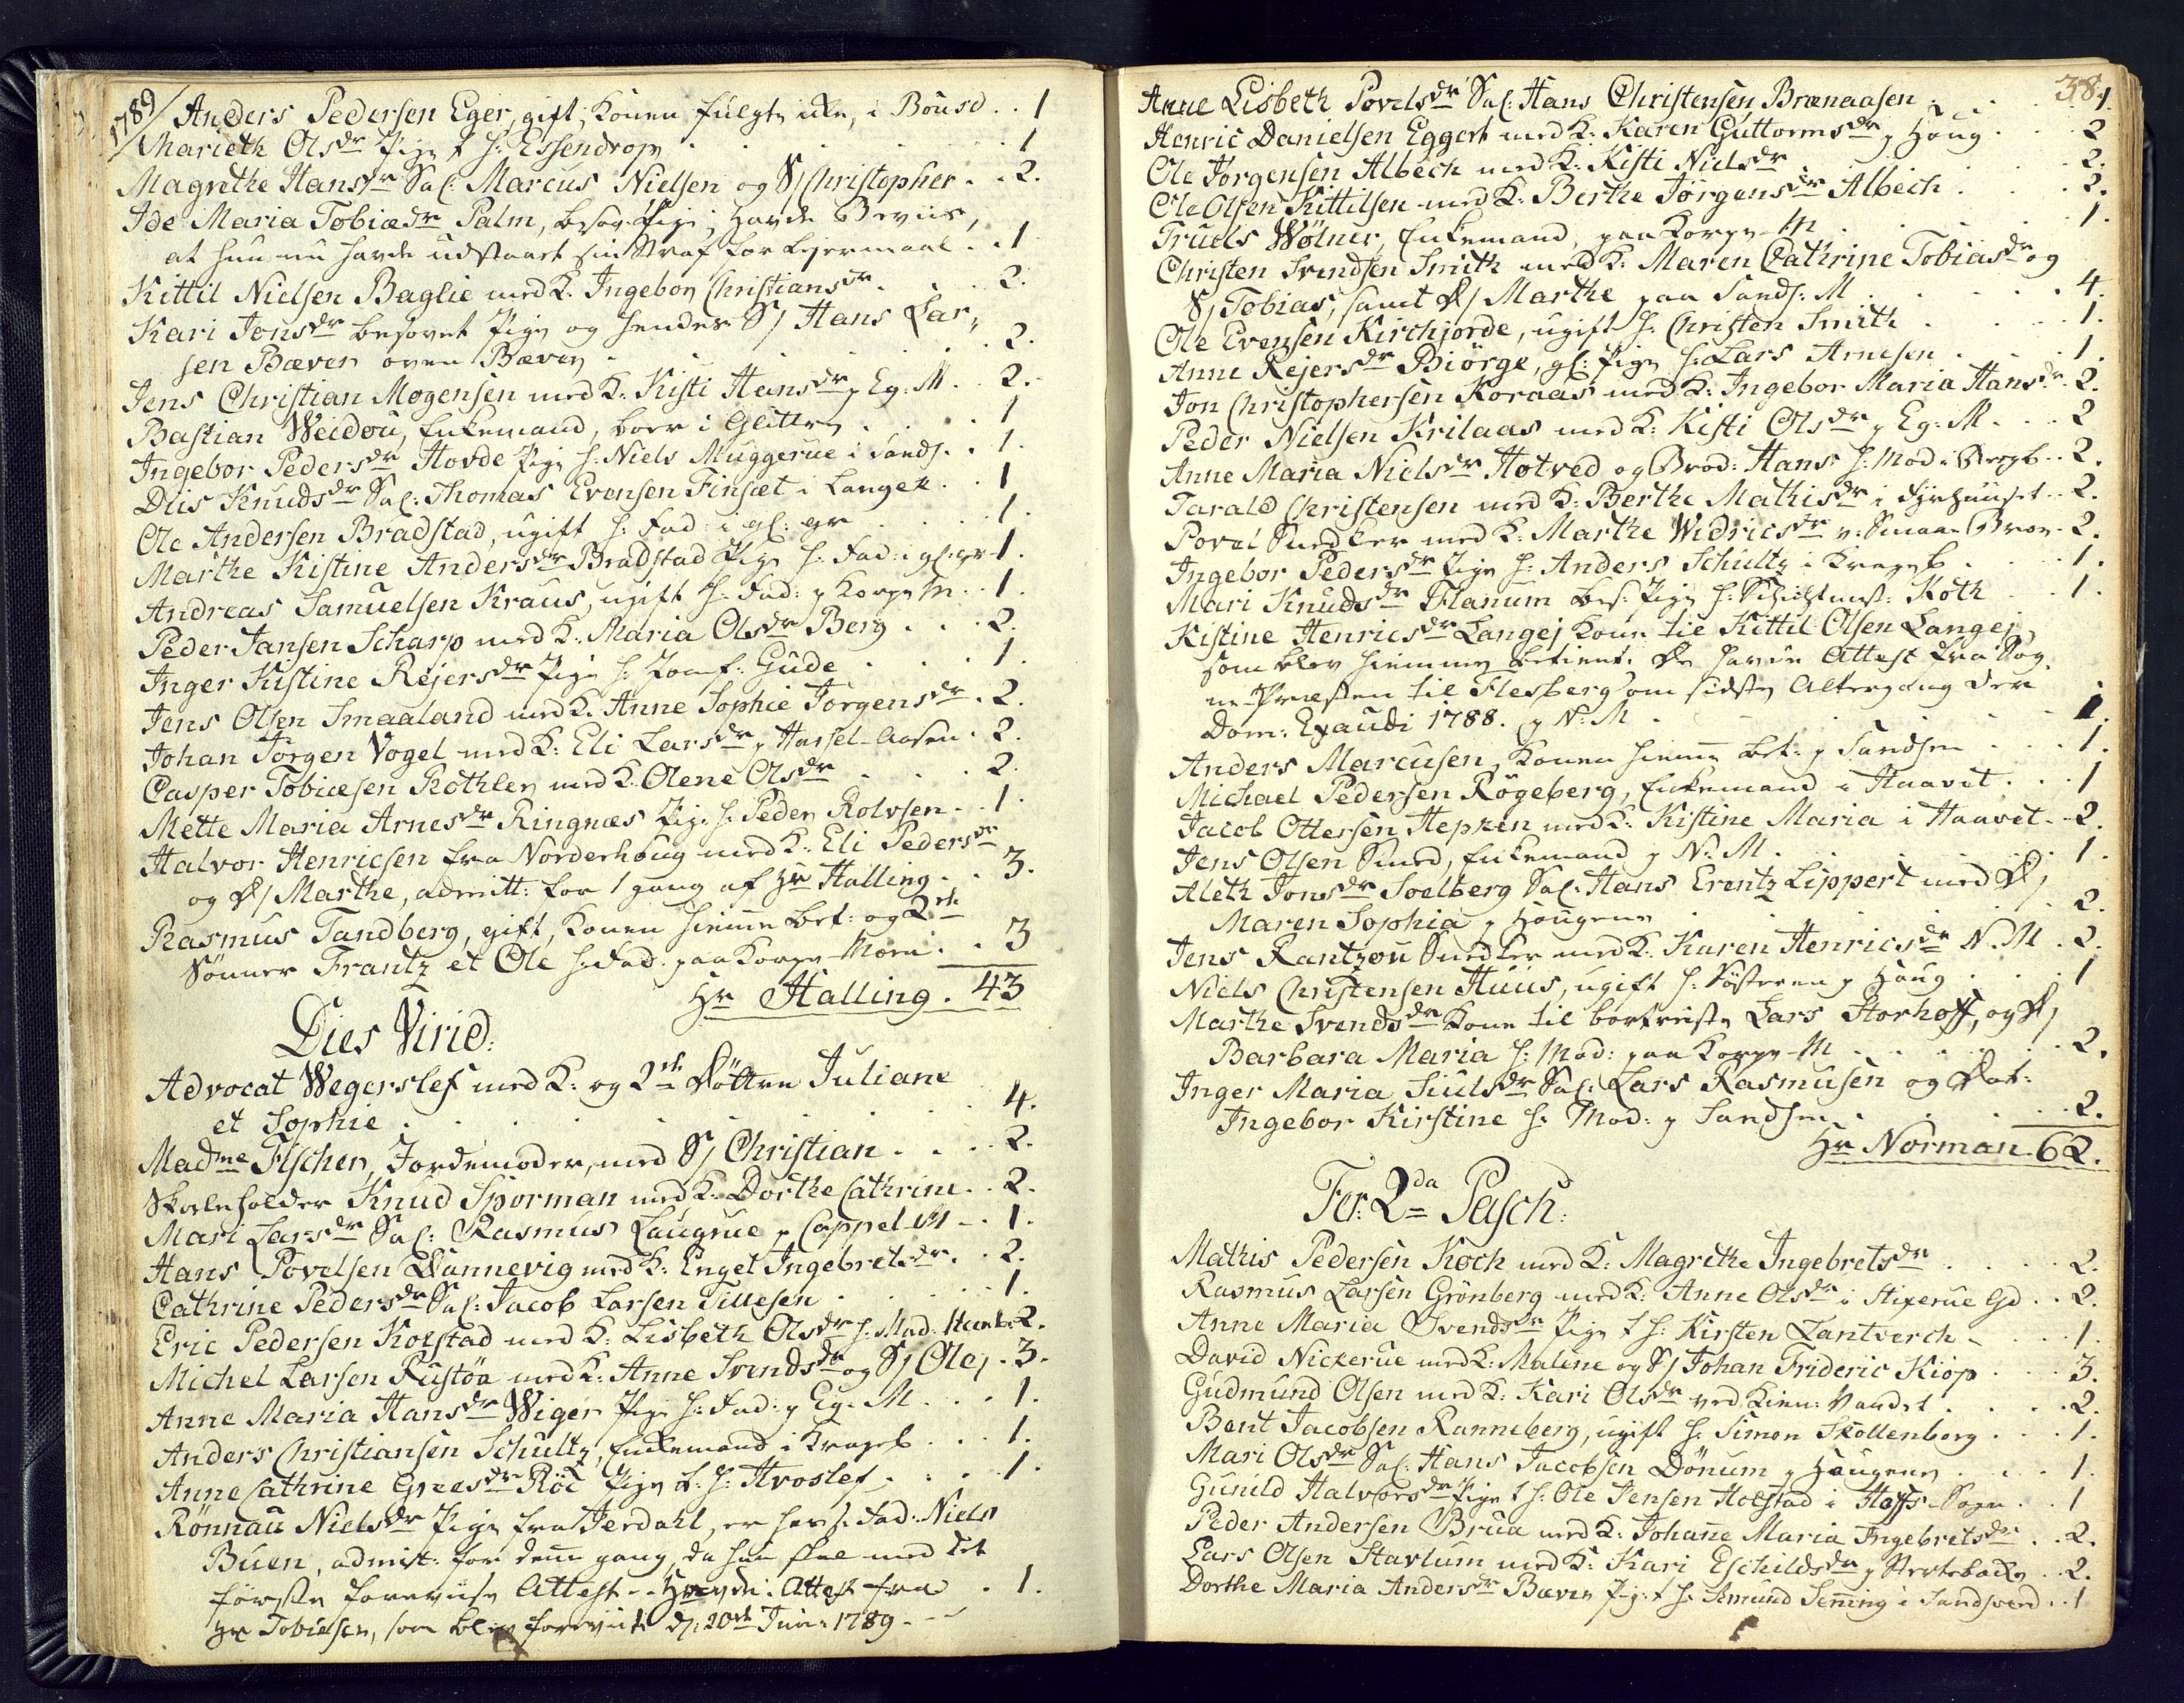 1789
Anders Pedersen Eger, gift, Konen fulgte ikke, i Boused . . 1
Marieth Olsdr Pige t h: Essendrop . 1
Magrethe Hansdr Sal: Marcus Nielsen og S/ Christopher . . 2.
Ide Maria Tobiædr Palm, besov: Pige, havde Beviis,
at hun nu havde udstaaet sin Straf for Lejermaal . . 1
Kittil Nielsen Baglie med K. Ingebor Christiansdr . 2.
Kari Jonsdr besovet Pige og hendes S/ Hans Lar,
sen Bæver oven Bæver . 2.
Jens Christian Mogensen med K: Kisti Hansdr p Eg: M . 2.
Bastian Weidou, Enkemand, boer i Glitter . 1
Ingebor Pedersdr Hovde Pige h: Niels Muggerue i Sands . . 1.
Dus Knudsdr Sal: Thomas Evensen Finsæt i Langer . . 1
Ole Andersen Bradstad, ugift h: Fad: i gl: gr . 1.
Marthe Kistine Andersdr Bradstad Pige h: Fad: i gl: gr 1.
Andreas Samuelsen Kraus, ugift h: Fad: p Korpe M . . 1.
Peder Jansen Scharp med K: Maria Olsdr Berg . . . 2.
Inger Kistine Rejersdr Pige h: Jomf: Gude . 1.
Jens Olsen Smaaland med K. Anne Sophie Jorgensdr . 2.
Johan Jørgen Vogel med K: Eli Larsdr p Hassel-Aasen . 2.
Casper Tobiæsen Rothler med K. Olene Olsdr . 2.
Mette Maria Arnesdr Ringnæs Pige h: Peder Rolvsen . . 1.
Halvor Henricsen fra Norderhoug med K: Eli Pedersdr
og D/ Marthe, admitt: for 1 gang af Hr Halling . . 3.
Rasmus Tandberg, gift, Konen hieme bet: og 2de
Sønner Frantz et Ole h: Fad: paa Korpe Moen . . 3
Hr Halling . 43
Dies Virid:
Advocat Wegerslef med K: og 2de Døttre Juliane
et Sophie . 4.
Madme Fischer, Jordemoder, med S/ Christian . . . 2.
Skoleholder Knud Sporman med K. Dorthe Cathrine . . 2.
Mari Larsdr Sal: Rasmus Laugrue p Cappel-M . . 1.
Hans Povelsen Wannevig med K: Engel Ingebretsdr . . 2.
Cathrine Pedersdr Sal: Jacob Larsen Tillesen . 1.
Eric Pedersen Kolstad med K: Lisbeth Olsdr h: Mad: 2.
Michel Larsen Rustøn med K: Anne Svendsdr og S/ Ole . 3.
Anne Maria Hansdr Wiger Pige h: Fad: p Eg. M . . . 1.
Anders Christiansen Schultz, Enkemand i Krageb . . . 1.
Anne Cathrine Greesdr Röe Pige t. h: Hvoslef . . . 1.
Rönnau Nielsdr Pige fra Jerdahl, er her h: Fad: Niels
Buen, admit: for dene gang, da hun skal med det
første foreviise Attest - Havde Attest fra . 1.
Hr Tobiesen, som blev foreviist d: 20de Junii 1789 -
38
Anne Lisbeth Povelsdr Sal: Hans Christensen Brænaasen . 1.
Henric Danielsen Eggert med K: Karen Guttormsdr p Houg . 2
Ole Jorgensen Albech med K: Kisti Nielsdr . 2.
Ole Olsen Kittilsen med K: Berthe Jørgensdr Albech . 2.
Truels Wølner, Enkemand, paa Korpe-M . 1.
Christen Svendsen Smith med K: Maren Cathrine Tobiasdr og
S/ Tobias, samt D/ Marthe paa Sands: M . 4.
Ole Evensen Kirchjorde, ugift h: Christen Smith . 1.
Anne Rejersdr Biörge, gl: Pige h: Lars Arnesen . 1.
Jon Christophersen Koraas med K: Ingebor Maria Hansdr . 2.
Peder Nielsen Krilaas med K: Kisti Olsdr p Eg: M . . . 2
Anne Maria Nielsdr Hotved og Brod: Hans h: Mod: i Bergb . . 2.
Tarald Christensen med K: Berthe Mathisdr i Fyrhuuset . . 2.
Povel Snedker med K: Marthe Widricsdr v: Smaae Broe . 2.
Ingebor Pedersdr Pige h: Anders Schultz i Krageb . 1.
Mari Knudsdr Flanum bes: Pige h: Schichtmst: Koth . 1.
Kistine Henricsdr Langej Kone til Kittil Olsen Langej,
som blev hiemme betient. De havde Attest fra Sog,
ne-Præsten til Flesberg om sidste Altergang der
Dom: Exaudi 1788. p N: M . 1.
Anders Marcusen, Konen hieme bet: p Sandsm . 1.
Michael Pedersen Rögeberg, Enkemand i Haavet . 1
Jacob Ottersen Hepken med K: Kistine Maria i Haavet . . 2.
Jens Olsen Smed, Enkemand p N: M . 1.
Aleth Jonsdr Soelberg Sal: Hans Erentz Lippert med D/
Maren Sophia p Hougene . 2.
Jens Rantzou Snedker med K: Karen Henricsdr N. M . 2.
Niels Christensen Huus, ugift h: Søsteren p Houg . 1
Marthe Svendsdr Kone til bortreiste Lars Storhoff, og D/
Barbara Maria h: Mod: paa Korpe-M . 2.
Inger Maria Siulsdr Sal: Lars Rasmusen og Dat:
Ingebor Kirstine h: Mod: p Sandsm . 2.
Hr Norman . 62.
Fer: 2da Pasch:
Mathis Pedersen Koch med K: Magrethe Ingebretsdr . 2.
Rasmus Larsen Grönberg med K: Anne Olsdr i Stixerue Gd . . 2.
Anne Maria Svendsdr Pige t h: Kirsten Lantverch . 1.
David Nickerue med K: Malene og S/ Johan Frideric Kiøp . 3.
Gudmund Olsen med K: Kari Olsdr ved Kien: Vandet . 2.
Bent Jacobsen Ranneberg, ugift h: Simon Skollenborg . 1.
Mari Olsdr Sal: Hans Jacobsen Dönum p Hougene . 1.
Gunild Halvorsdr Pige t h: Ole Jensen Holstad i Hoffs-Sogn . 1
Peder Andersen Brua med K: Johane Maria Ingebretsdr . . 2.
Lars Olsen Stavlum med K: Kari Eschildsdr p Stertebacke . . 2.
Dorthe Maria Andersdr Bæver Pige t h: Amund Tening i Sandsverd . . 1